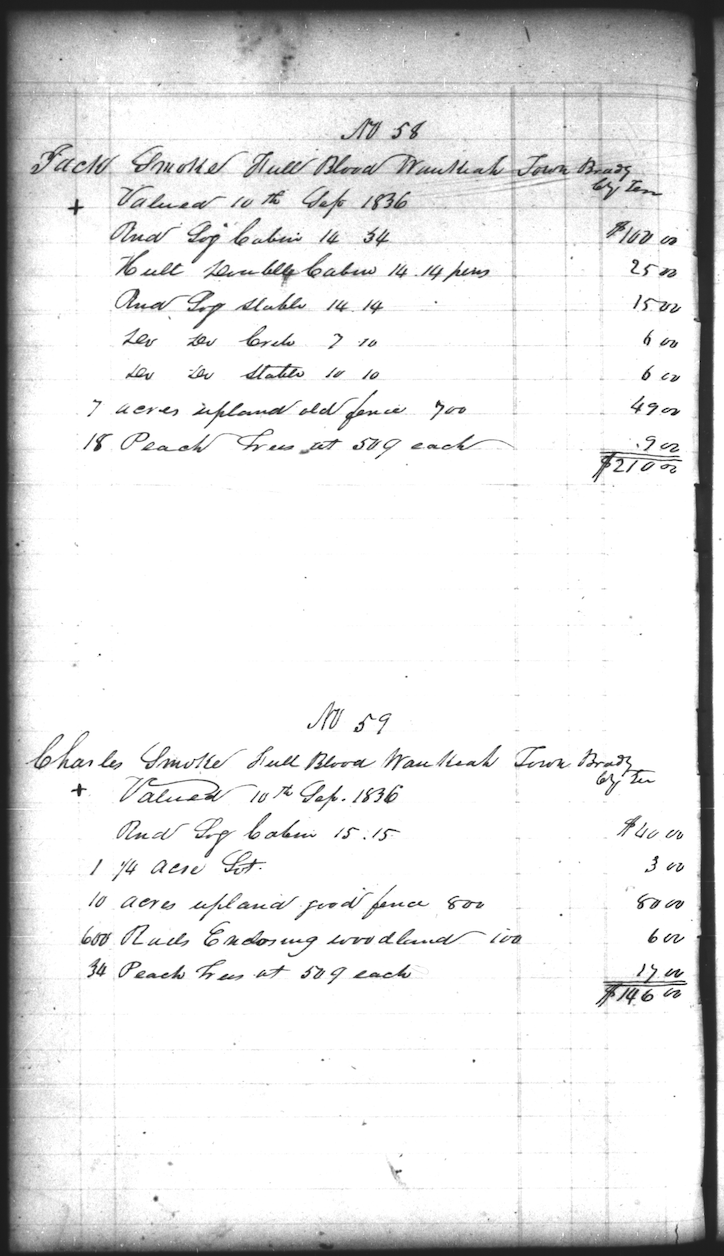 No 58
Jack Smoke Full Blood Wauheah Town Brady
Cty Ten
+ Valued 10th Sep 1836
Rnd Log Cabin 14 34 $100 00
Hult Double Cabin 14.14 pens 25 00
Rnd Log Stable 14 14 15 00
Do Do Crib 7 10 6 00
Do Do Stable 10 10 6 00
7 acres upland old fence 700 49 00
18 Peach Trees at 50¢ each 9 00
$210 00
No 59
Charles Smoke Full Blood Wauheah Town Brady
Cty Ten
+ Valued 10th Sep. 1836
Rnd Log Cabin 15.15 $40 00
1 1/4 acre Lot. 3 00
10 acres upland good fence 800 80 00
600 Rails Enclosing woodland 100 6 00
34 Peach Trees at 50¢ each 17 00
$146 00